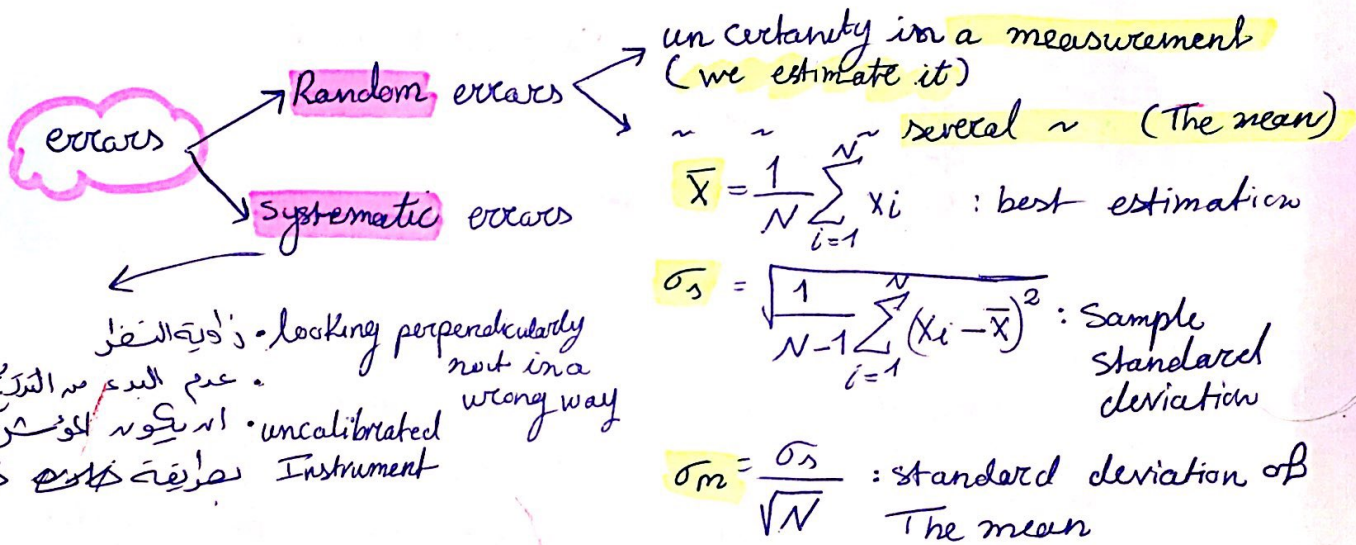 errors
Random errors
un certanity in a measurement
(we estimate it)
~ ~ ~ several ~ (The mean)
X̄ = 1/N ∑_{i=1}^{N} xi : best estimation
σs = √(1/(N-1) ∑_{i=1}^{N} (xi - x̄)²) : Sample
standard
deviation
σm = σs/√N : standard deviation of
The mean
systematic errors
زاوية النظر • looking perpendicularly
not in a
wrong way
• عدم البدء من
ان يكون المؤشر • uncalibrated
بطريقة Instrument